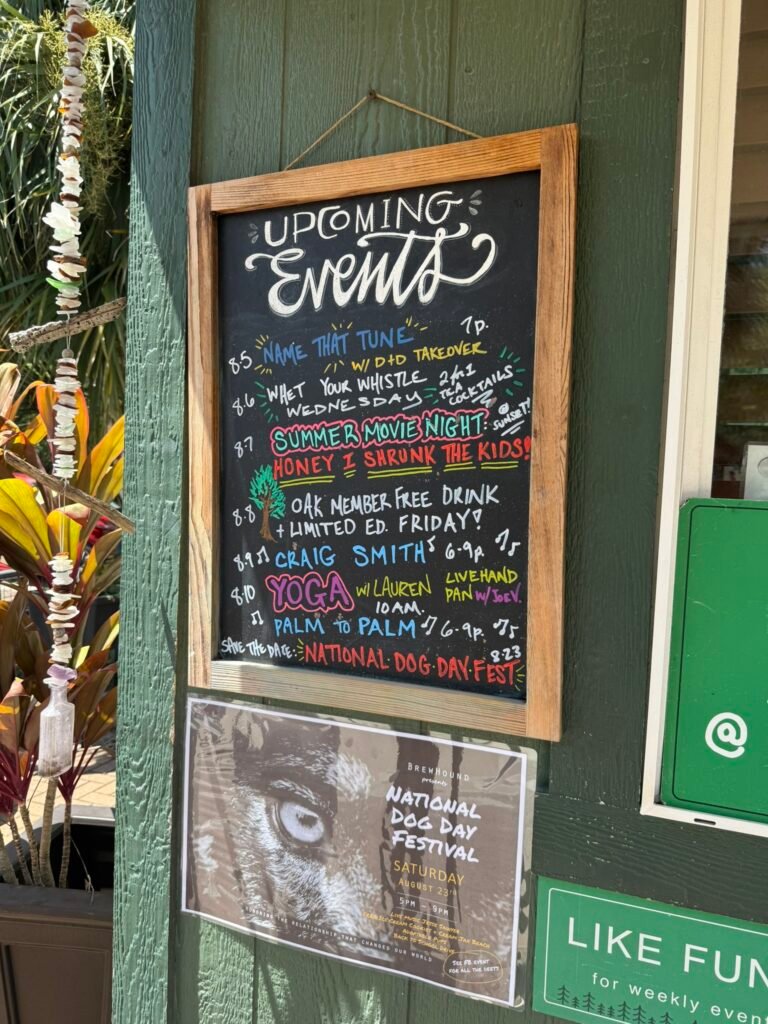 UPCOMING
Events
8.5 NAME THAT TUNE 7p.
W/ D+D TAKEOVER
8.6 WHET YOUR WHISTLE
WEDNESDAY
2 for 1
TEA
COCKTAILS
@
SUNSET!
8.7 SUMMER MOVIE NIGHT:
HONEY I SHRUNK THE KIDS!
8.8 OAK MEMBER FREE DRINK
+ LIMITED ED. FRIDAY!
8.9 CRAIG SMITH 6-9p.
8.10 YOGA W/ LAUREN
10AM.
LIVE HAND
PAN W/ JOE V.
PALM TO PALM 6-9p.
SAVE THE DATE: NATIONAL DOG DAY FEST 8-23
BREWHOUND
presents
NATIONAL
DOG DAY
FESTIVAL
SATURDAY
AUGUST 23RD
5PM - 9PM
THE RELATIONSHIP THAT CHANGED OUR WORLD
ADOPTABLE PUPS
SEE FB EVENT
FOR ALL THE DEETS
@
LIKE FUN
for weekly event